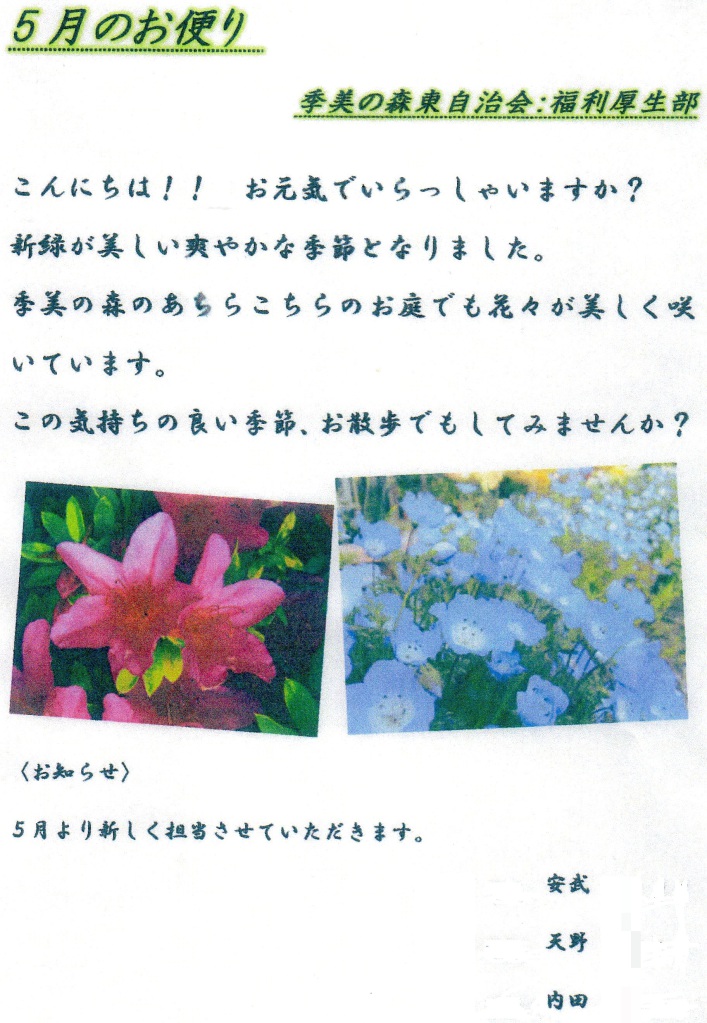 5月のお便り
季美の森東自治会:福利厚生部
こんにちは!! お元気でいらっしゃいますか?
新緑が美しい爽やかな季節となりました。
季美の森のあちらこちらのお庭でも花々が美しく咲
いています。
この気持ちの良い季節、お散歩でもしてみませんか?
〈お知らせ〉
5月より新しく担当させていただきます。
安武
天野
内田